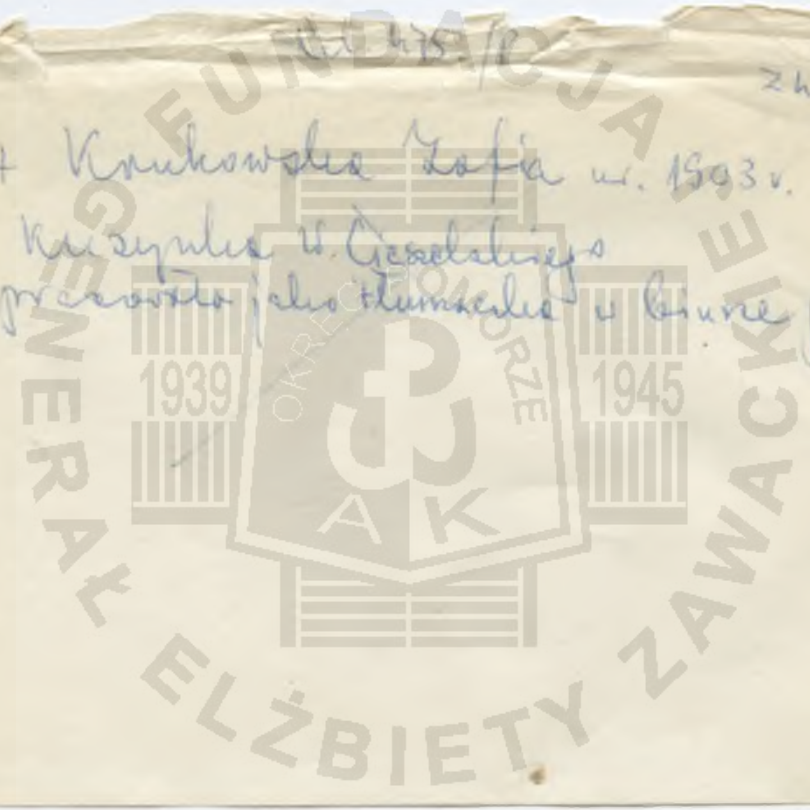 475/
+ Krukowska Zofia ur. 1903 r.
Kuzynka W. Ciesielskiego
pracowała jako tłumaczka w biurze
FUNDACJA
GENERAŁ ELŻBIETY ZAWACKIEJ
OKRĘG POMORZE
1939 1945
AK